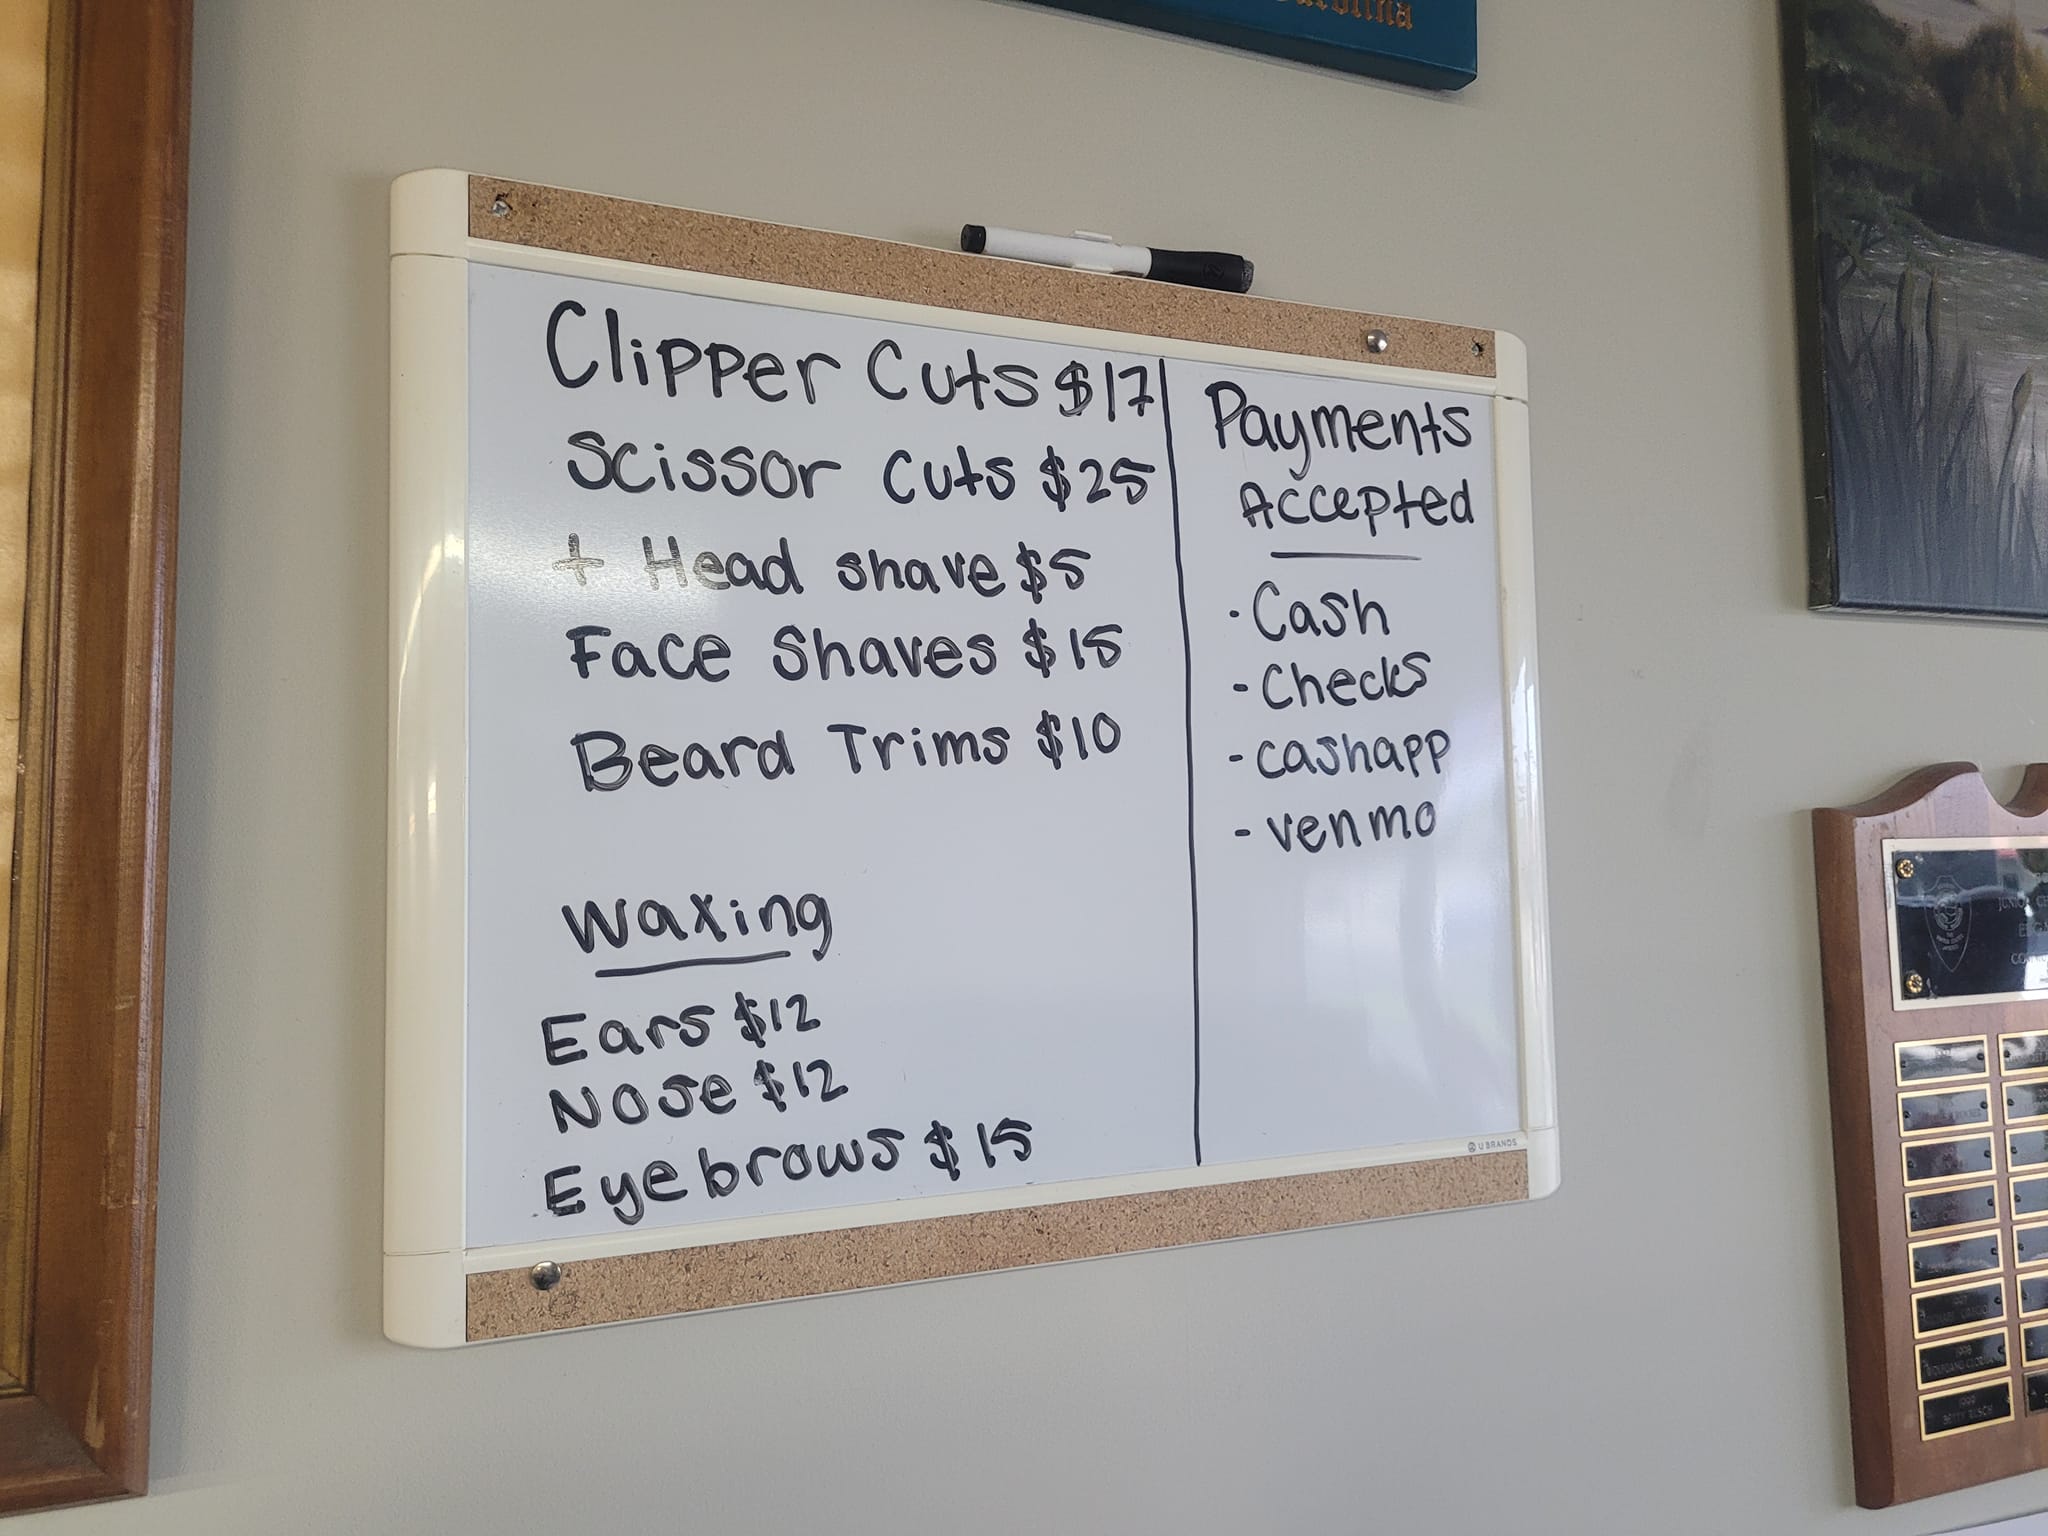 Carolina
Clipper Cuts $17
Scissor Cuts $25
+ Head shave $5
Face Shaves $15
Beard Trims $10
Waxing
Ears $12
Nose $12
Eyebrows $15
Payments
Accepted
- Cash
- Checks
- cashapp
- venmo
U BRANDS
1998
1999